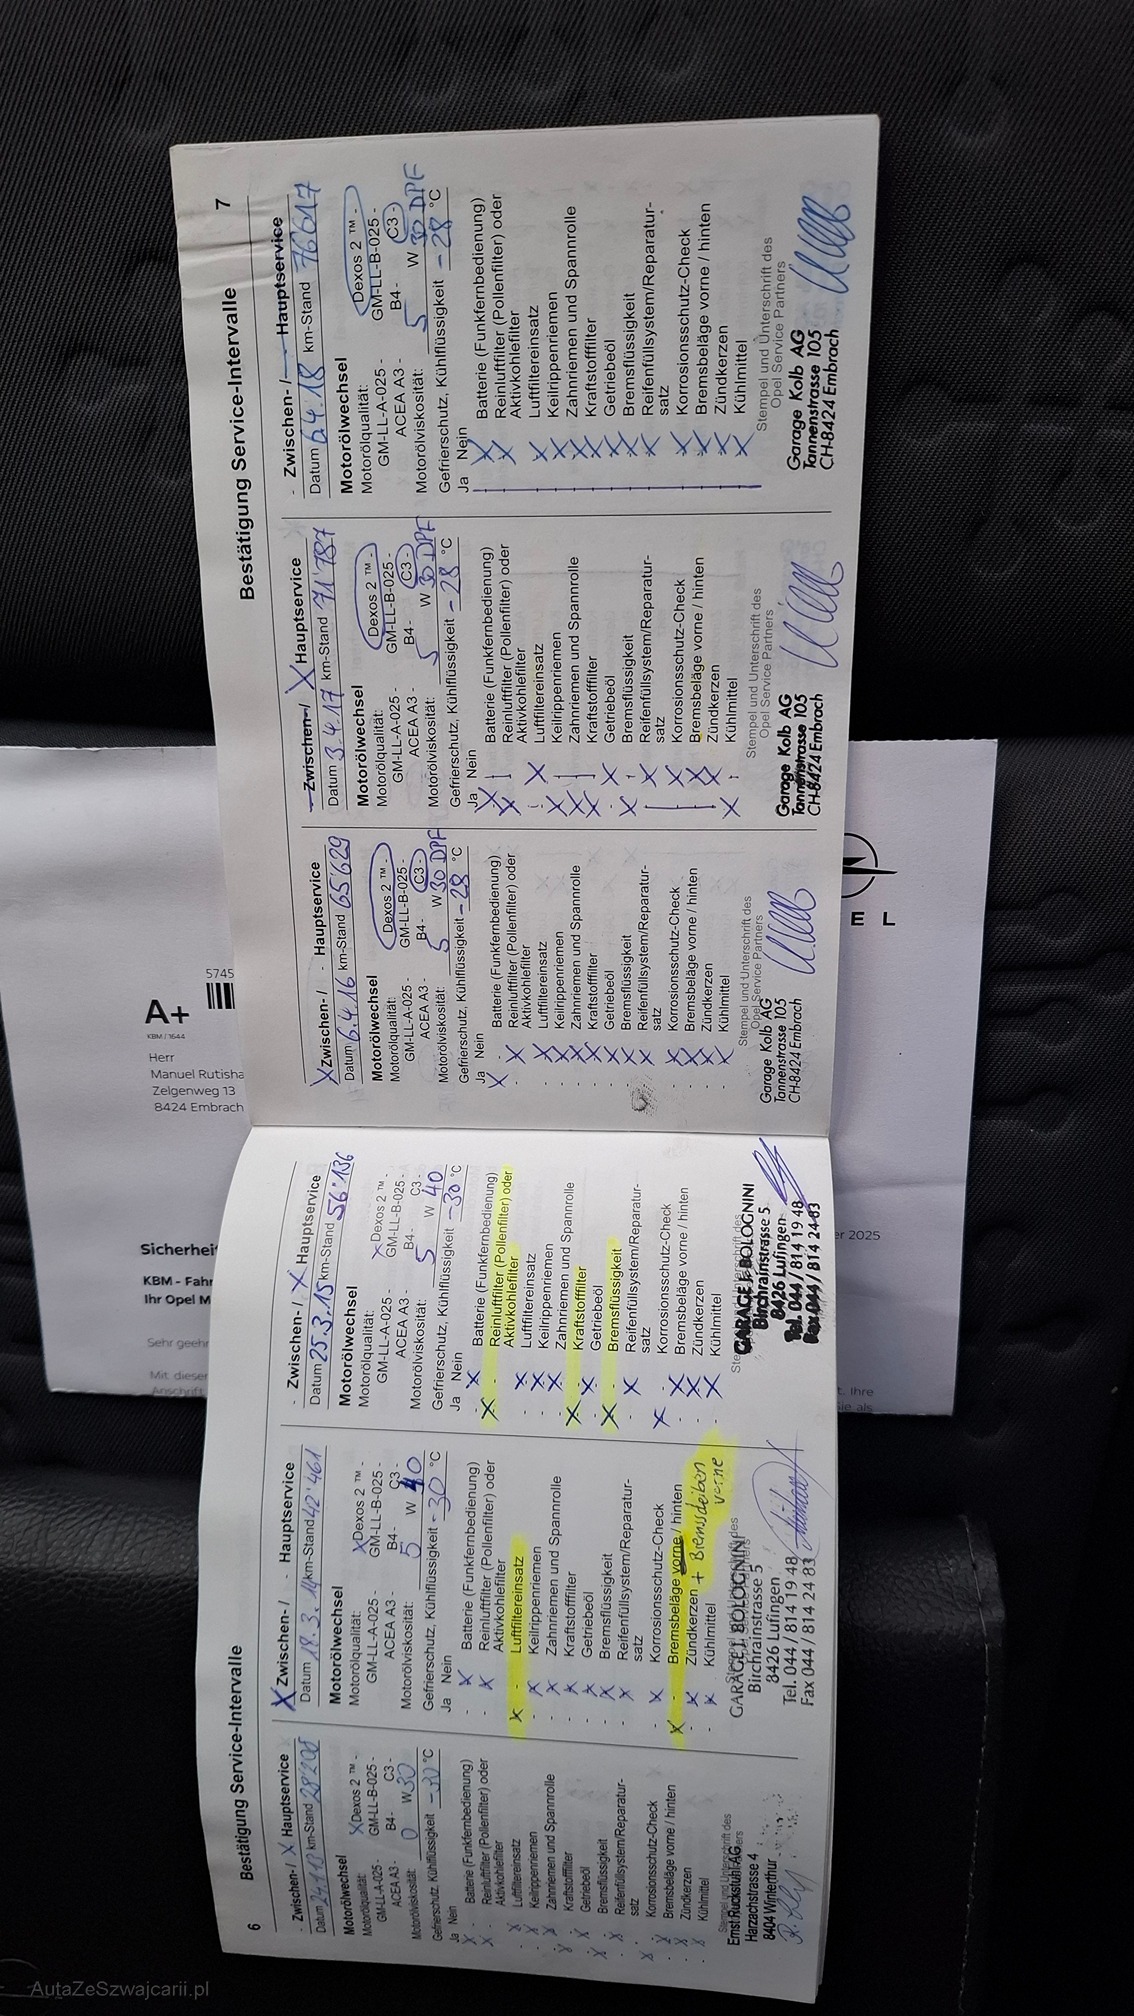 Bestätigung Service-Intervalle
6
- Zwischen- / X Hauptservice
Datum km-Stand 28'208
Motorölwechsel
Motorölqualität: X Dexos 2 ™ -
GM-LL-A-025 - GM-LL-B-025
ACEA A3 - B4- C3 -
Motorölviskosität: 0 W 30
Gefrierschutz, Kühlflüssigkeit - 30 °C
Ja Nein
Batterie (Funkfernbedienung)
Reinluftfilter (Pollenfilter) oder
Aktivkohlefilter
Luftfiltereinsatz
Keilrippenriemen
Zahnriemen und Spannrolle
Kraftstofffilter
Getriebeöl
Bremsflüssigkeit
Reifenfüllsystem/Reparatur-
satz
Korrosionsschutz-Check
Bremsbeläge vorne / hinten
Zündkerzen
Kühlmittel
Ernst Ruckstuhl AG
Harzachstrasse 4
8404 Winterthur
X Zwischen- / - Hauptservice
Datum 18.3.14 km-Stand 42'461
Motorölwechsel
Motorölqualität: X Dexos 2 ™ -
GM-LL-A-025 - GM-LL-B-025 -
ACEA A3 - B4- C3 -
Motorölviskosität: 5 W 40
Gefrierschutz, Kühlflüssigkeit - 30 °C
Ja Nein
Batterie (Funkfernbedienung)
Reinluftfilter (Pollenfilter) oder
Aktivkohlefilter
Luftfiltereinsatz
Keilrippenriemen
Zahnriemen und Spannrolle
Kraftstofffilter
Getriebeöl
Bremsflüssigkeit
Reifenfüllsystem/Reparatur-
satz
Korrosionsschutz-Check
Bremsbeläge vorne / hinten
Zündkerzen + Bremsscheiben
Kühlmittel vorne
GARAGE J. BOLOGNINI
Birchrainstrasse 5
8426 Lufingen
Tel. 044 / 814 19 48
Fax 044 / 814 24 83
- Zwischen- / X Hauptservice
Datum 25.3.15 km-Stand 56'136
Motorölwechsel
Motorölqualität: X Dexos 2 ™ -
GM-LL-A-025 - GM-LL-B-025 -
ACEA A3 - B4- C3 -
Motorölviskosität: 5 W 40
Gefrierschutz, Kühlflüssigkeit -30 °C
Ja Nein
Batterie (Funkfernbedienung)
Reinluftfilter (Pollenfilter) oder
Aktivkohlefilter
Luftfiltereinsatz
Keilrippenriemen
Zahnriemen und Spannrolle
Kraftstofffilter
Getriebeöl
Bremsflüssigkeit
Reifenfüllsystem/Reparatur-
satz
Korrosionsschutz-Check
Bremsbeläge vorne / hinten
Zündkerzen
Kühlmittel
GARAGE J. BOLOGNINI
Birchrainstrasse 5
8426 Lufingen
Tel. 044 / 814 19 48
Fax 044 / 814 24 83
Bestätigung Service-Intervalle
7
X Zwischen- / - Hauptservice
Datum 6.4.16 km-Stand 65'629
Motorölwechsel
Motorölqualität: Dexos 2 ™ -
GM-LL-A-025 - GM-LL-B-025 -
ACEA A3 - B4 - C3 -
Motorölviskosität: 5 W 30 DPF
Gefrierschutz, Kühlflüssigkeit - 28 °C
Ja Nein
Batterie (Funkfernbedienung)
Reinluftfilter (Pollenfilter) oder
Aktivkohlefilter
Luftfiltereinsatz
Keilrippenriemen
Zahnriemen und Spannrolle
Kraftstofffilter
Getriebeöl
Bremsflüssigkeit
Reifenfüllsystem/Reparatur-
satz
Korrosionsschutz-Check
Bremsbeläge vorne / hinten
Zündkerzen
Kühlmittel
Stempel und Unterschrift des
Opel Service Partners
Garage Kolb AG
Tannenstrasse 105
CH-8424 Embrach
Zwischen- / X Hauptservice
Datum 3.4.17 km-Stand 71'787
Motorölwechsel
Motorölqualität: Dexos 2 ™ -
GM-LL-A-025 - GM-LL-B-025
ACEA A3 - B4 - C3 -
Motorölviskosität: 5 W 30 DPF
Gefrierschutz, Kühlflüssigkeit - 28 °C
Ja Nein
Batterie (Funkfernbedienung)
Reinluftfilter (Pollenfilter) oder
Aktivkohlefilter
Luftfiltereinsatz
Keilrippenriemen
Zahnriemen und Spannrolle
Kraftstofffilter
Getriebeöl
Bremsflüssigkeit
Reifenfüllsystem/Reparatur-
satz
Korrosionsschutz-Check
Bremsbeläge vorne / hinten
Zündkerzen
Kühlmittel
Stempel und Unterschrift des
Opel Service Partners
Garage Kolb AG
Tannenstrasse 105
CH-8424 Embrach
- Zwischen- / Hauptservice
Datum 6.4.18 km-Stand 76617
Motorölwechsel
Motorölqualität: Dexos 2 ™ -
GM-LL-A-025 GM-LL-B-025 -
ACEA A3 - B4 - C3 -
Motorölviskosität: 5 W 30 DPF
Gefrierschutz, Kühlflüssigkeit - 28 °C
Ja Nein
Batterie (Funkfernbedienung)
Reinluftfilter (Pollenfilter) oder
Aktivkohlefilter
Luftfiltereinsatz
Keilrippenriemen
Zahnriemen und Spannrolle
Kraftstofffilter
Getriebeöl
Bremsflüssigkeit
Reifenfüllsystem/Reparatur-
satz
Korrosionsschutz-Check
Bremsbeläge vorne / hinten
Zündkerzen
Kühlmittel
Stempel und Unterschrift des
Opel Service Partners
Garage Kolb AG
Tannenstrasse 105
CH-8424 Embrach
A+
5745
KBM / 1644
Herr
Manuel Rutisha
Zelgenweg 13
8424 Embrach
E L
er 2025
Sicherheit
KBM - Fahr
Ihr Opel M
Sehr geehr
Mit dieser
Anschrift
t. Ihre
ie als
AutaZeSzwajcarii.pl